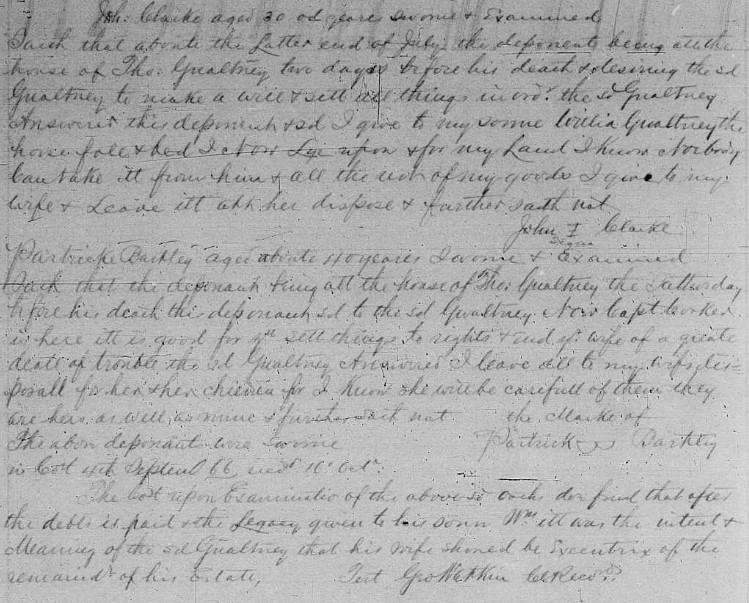 Joh: Clarke aged 30 od yeare Sworne & Examined
Saith that aboute the Latter end of July the deponent being att the
house of Tho: Gualtney two dayes before his death & desiring the sd
Gualtney to make a will & sett all things in ordr. the sd Gualtney
Answered this deponent & sd I give to my sonne Willia Gualtney the
horse fole & bed I Now Lye upon & for my Land I know Norbody
Can take itt from him & all the rest of my goods I give to my
wife & Leave itt att her dispose & further saith not
John I Clarke
Signa
Partrick Barkley aged aboute 40 yeares Sworne & Examined
Saith that the deponant being att the house of Tho: Gualtney the Satturday
before his death this deponant sd to the sd Gwaltney. Now Capt Corker
is here itt is good for you sett things to rights & rid yr. wife of a greate
deall of trouble the sd Gualtney Answered I leave all to my wifes dis=
posall for her & her children for I know she will be carefull of them they
are hers as well as mine & further saith not the Marke of
The abov deponants were Sworne Partrick Barkley
in Cort 4th Septem 66 recd. 16 Octr.
The Cort upon Examinatio of the above sd oaths doe find that after
the debts is paid & the Legacy given to his sonn Wm itt was the intent &
Meaning of the sd Gualtney that his wife should be Excentrix of the
remaindr of his Estate, Test Geo Watkins Cl Recd.